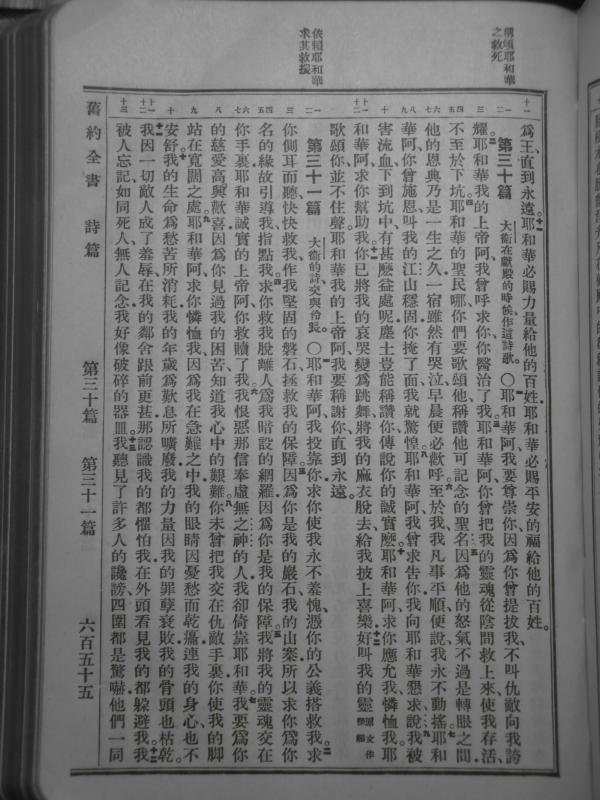 稱頌耶和華
之救死
依賴耶和華
求其救援
為王直到永遠。耶和華必賜力量給他的百姓耶和華必賜平安的福給他的百姓。
第三十篇 大衞在獻殿的時候作這詩歌。〇耶和華阿我要尊崇你因為你曾提拔我不叫仇敵向我誇
耀耶和華我的上帝阿我曾呼求你你醫治了我耶和華阿你曾把我的靈魂從陰間救上來使我存活
不至於下坑耶和華的聖民哪你們要歌頌他稱讚他可記念的聖名因為他的怒氣不過是轉眼之間
他的恩典乃是一生之久一宿雖然有哭泣早晨便必歡呼至於我我凡事平順便說我永不動搖耶和
華阿你曾施恩叫我的江山穩固你掩了面我就驚惶耶和華阿我曾求告你我向耶和華懇求說我被
害流血下到坑中有甚麼益處呢塵土豈能稱讚你傳說你的誠實麼耶和華阿求你應允我憐恤我耶
和華阿求你幫助我你已將我的哀哭變為跳舞將我的麻衣脫去給我披上喜樂好叫我的靈原文作榮耀
歌頌你並不住聲耶和華我的上帝阿我要稱謝你直到永遠。
第三十一篇 大衞的詩交與伶長。〇耶和華阿我投靠你求你使我永不羞愧憑你的公義搭救我求
你側耳而聽快快救我作我堅固的磐石拯救我的保障因為你是我的巖石我的山寨所以求你為你
名的緣故引導我指點我求你救我脫離人為我暗設的網羅因為你是我的保障我將我的靈魂交在
你手裏耶和華誠實的上帝阿你救贖了我我恨惡那信奉虛無之神的人我卻倚靠耶和華我要為你
的慈愛高興歡喜因為你見過我的困苦知道我心中的艱難你未曾把我交在仇敵手裏你使我的腳
站在寬闊之處耶和華阿求你憐恤我因為我在急難之中我的眼睛因憂愁而乾癟連我的身心也不
安舒我的生命為愁苦所消耗我的年歲為歎息所曠廢我的力量因我的罪孽衰敗我的骨頭也枯乾
我因一切敵人成了羞辱在我的鄰舍跟前更甚那認識我的都懼怕我在外頭看見我的都躲避我我
被人忘記如同死人無人記念我好像破碎的器皿我聽見了許多人的讒謗四圍都是驚嚇他們一同
舊約全書 詩篇 第三十篇 第三十一篇 六百五十五